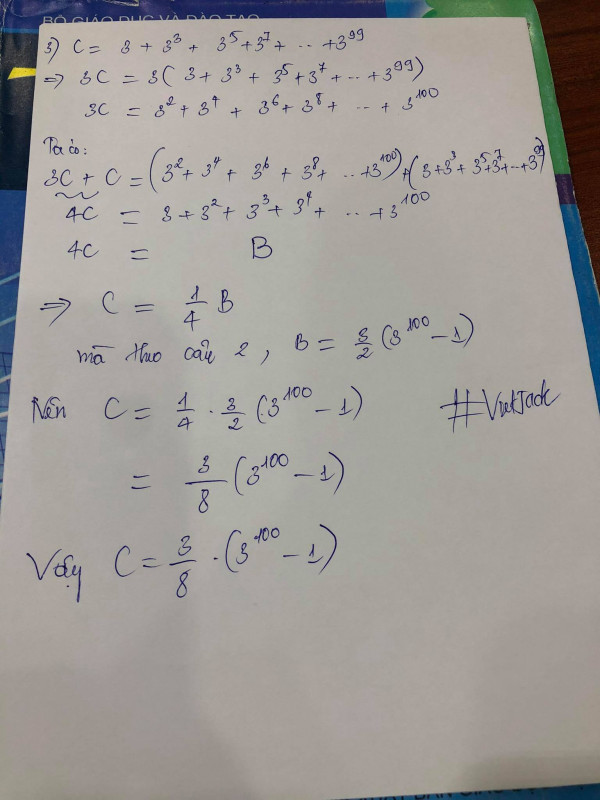 BỘ GIÁO DỤC VÀ ĐÀO TẠO
3) C = 3 + 3^3 + 3^5 + 3^7 + ... + 3^99
=> 3C = 3(3 + 3^3 + 3^5 + 3^7 + ... + 3^99)
3C = 3^2 + 3^4 + 3^6 + 3^8 + ... + 3^100
Ta có:
3C + C = (3^2 + 3^4 + 3^6 + 3^8 + ... + 3^100) + (3 + 3^3 + 3^5 + 3^7 + ... + 3^99)
4C = 3 + 3^2 + 3^3 + 3^4 + ... + 3^100
4C = B
=> C = 1/4 B
mà theo câu 2, B = 3/2 (3^100 - 1)
Nên C = 1/4 . 3/2 (3^100 - 1)
#VietJack
= 3/8 (3^100 - 1)
Vậy C = 3/8 . (3^100 - 1)